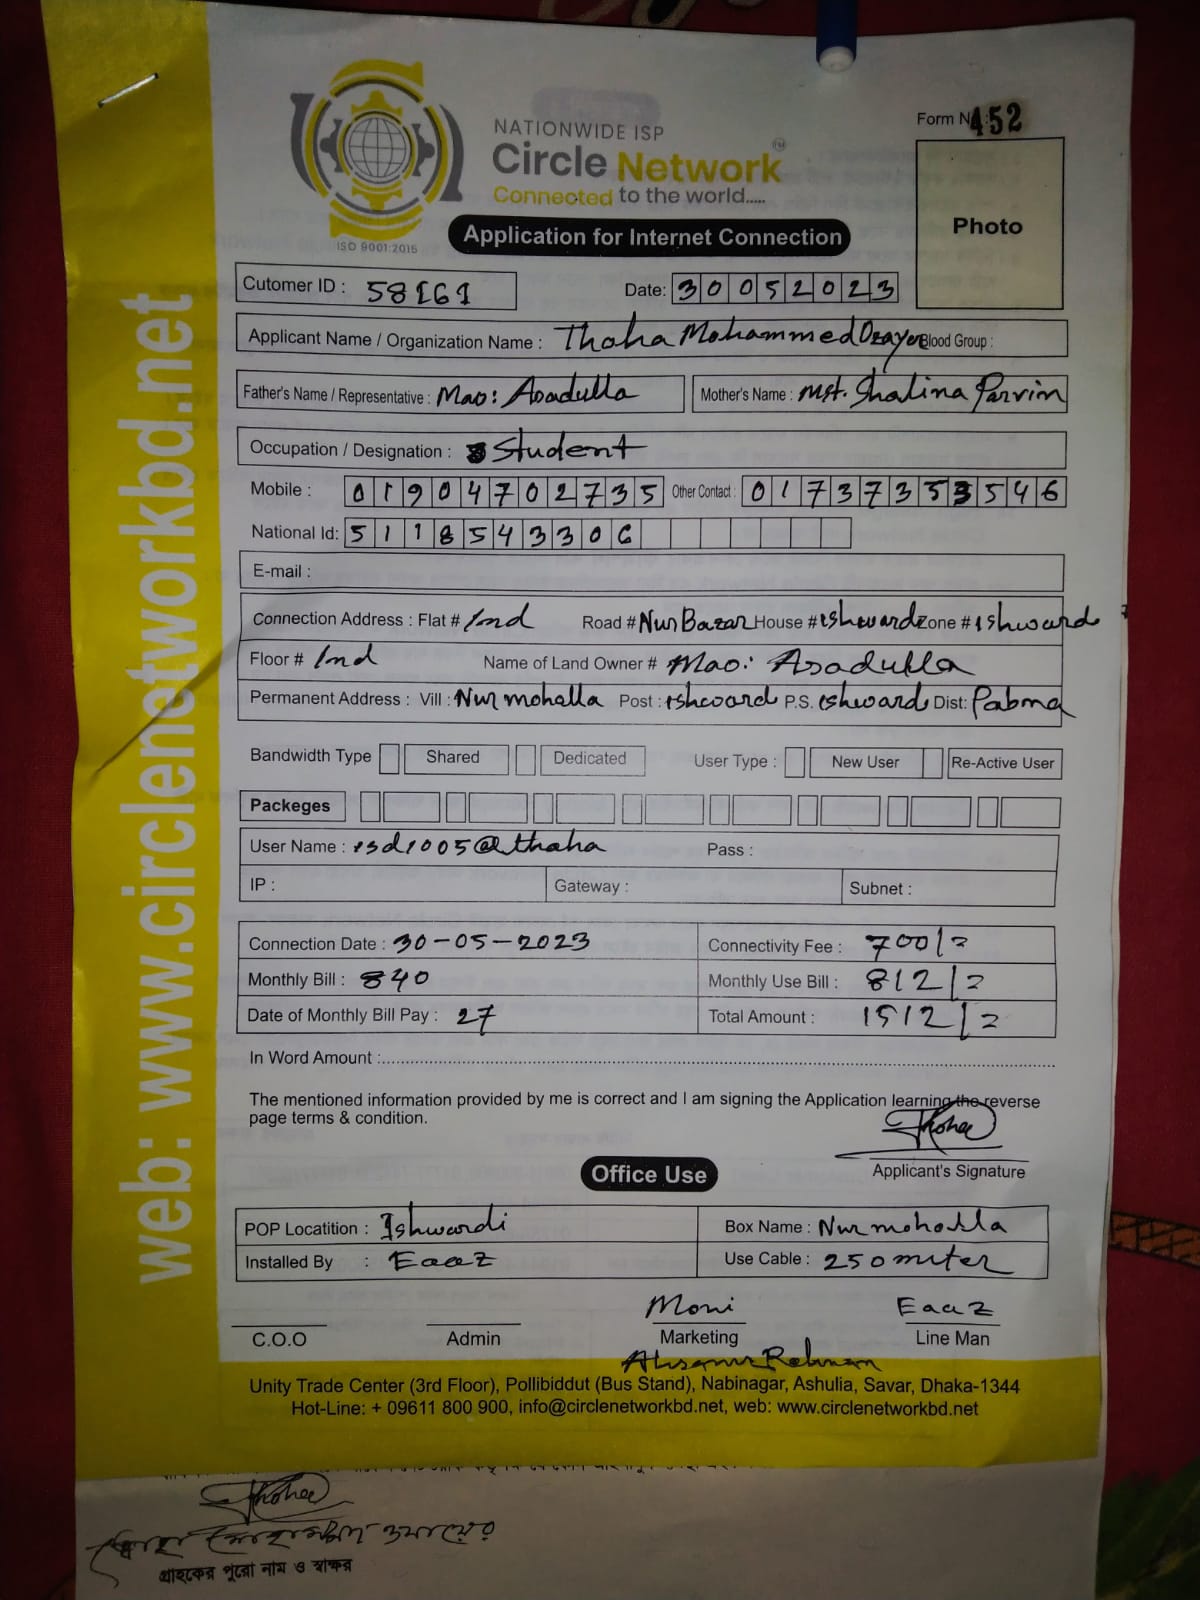 NATIONWIDE ISP
Circle Network
TM
Connected to the world.....
ISO 9001:2015
Form No: 452
Photo
Application for Internet Connection
Cutomer ID : 58161
Date: 30052023
Applicant Name / Organization Name : Thoha Mohammed Ozayer Blood Group :
Father's Name / Representative : Mao: Asadulla
Mother's Name : Mst. Shalina Parvin
Occupation / Designation : Student
Mobile : 01904702735 Other Contact : 01737353546
National Id: 5118543306
E-mail :
Connection Address : Flat # Ind Road # Nur Bazar House # ishwardi Zone # ishwardi
Floor # Ind Name of Land Owner # Mao: Asadulla
Permanent Address : Vill : Nur mohalla Post : ishwardi P.S. ishwardi Dist: Pabna
Bandwidth Type Shared Dedicated User Type : New User Re-Active User
Packeges
User Name : isd1005@thoha Pass :
IP : Gateway : Subnet :
Connection Date : 30-05-2023 Connectivity Fee : 700/=
Monthly Bill : 840 Monthly Use Bill : 812/=
Date of Monthly Bill Pay : 27 Total Amount : 1512/=
In Word Amount :
The mentioned information provided by me is correct and I am signing the Application learning the reverse
page terms & condition.
Thoha
Applicant's Signature
Office Use
POP Locatition : Ishwardi Box Name : Nur mohalla
Installed By : Eaaz Use Cable : 250 miter
Moni Eaaz
C.O.O Admin Marketing Line Man
Ahsanur Rahman
Unity Trade Center (3rd Floor), Pollibiddut (Bus Stand), Nabinagar, Ashulia, Savar, Dhaka-1344
Hot-Line: + 09611 800 900, info@circlenetworkbd.net, web: www.circlenetworkbd.net
web: www.circlenetworkbd.net
Thoha
মোহাম্মদ ওযায়ের
গ্রাহকের পুরো নাম ও স্বাক্ষর